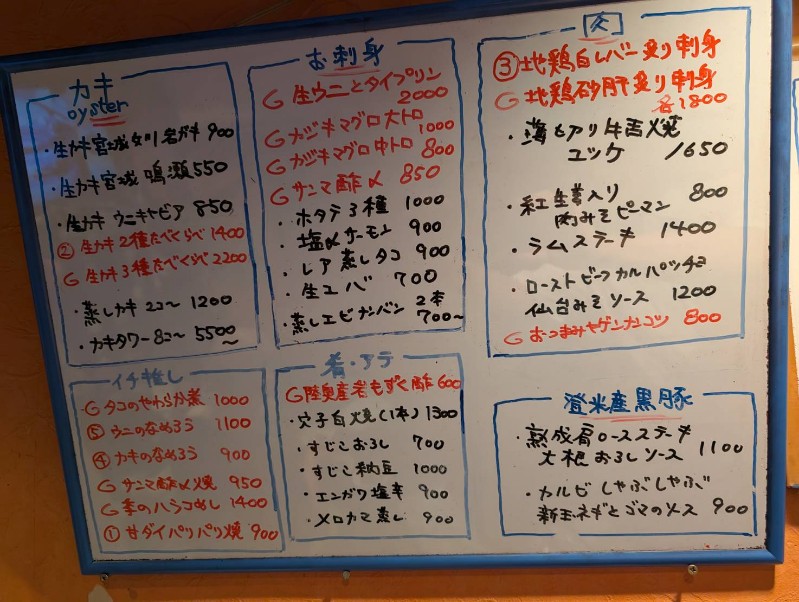 カキ
oyster
・生カキ宮城女川名ガキ 900
・生カキ宮城 鳴瀬 550
・生カキ ウニキトビア 850
② 生カキ2種たべくらべ 1400
G 生カキ3種たべくらべ 2200
・蒸しカキ 2コ〜 1200
・カキタワー 8コ〜 5500〜
お刺身
G 生ウニとタイプリン
2000
G カジキマグロ大トロ
1000
G カジキマグロ中トロ 800
G サンマ酢〆 850
・ホタテ3種 1000
・塩〆サーモン 900
・レア蒸しタコ 900
・生ユバ 700
・蒸しエビナンバン 2本
700〜
③ 地鶏白レバー炙り刺身
G 地鶏砂肝炙り刺身
各1800
ユッケ 1650
・紅生姜入り 800
肉みそピーマン
・ラムステーキ 1400
・ローストビーフカルパッチョ
仙台みそソース 1200
G おつまみヤゲンナンコツ 800
イチ推し
G タコのやわらか煮 1000
⑤ ウニのなめろう 1100
④ カキのなめろう 900
G サンマ酢〆焼 950
G 季のハラコめし 1400
① 甘ダイパリパリ焼 900
肴・アテ
G 陸奥産岩もずく酢 600
・穴子白焼(1本) 1300
・すじこおろし 700
・すじこ納豆 1000
・エンガワ塩辛 900
・メロカマ蒸し 900
登米産黒豚
・熟成肩ロースステーキ
大根おろしソース 1100
・カルビしゃぶしゃぶ
新玉ネギとゴマのソース 900